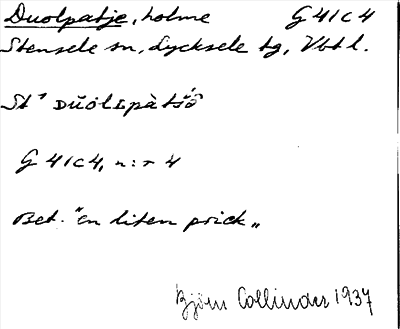 Duolpatje, holme G 41 c 4
Stensele sn, Lycksele tg, Vbtl.
G 41 c 4, n:r 4
Bet. "en liten prick"
Björn Collinder 1937